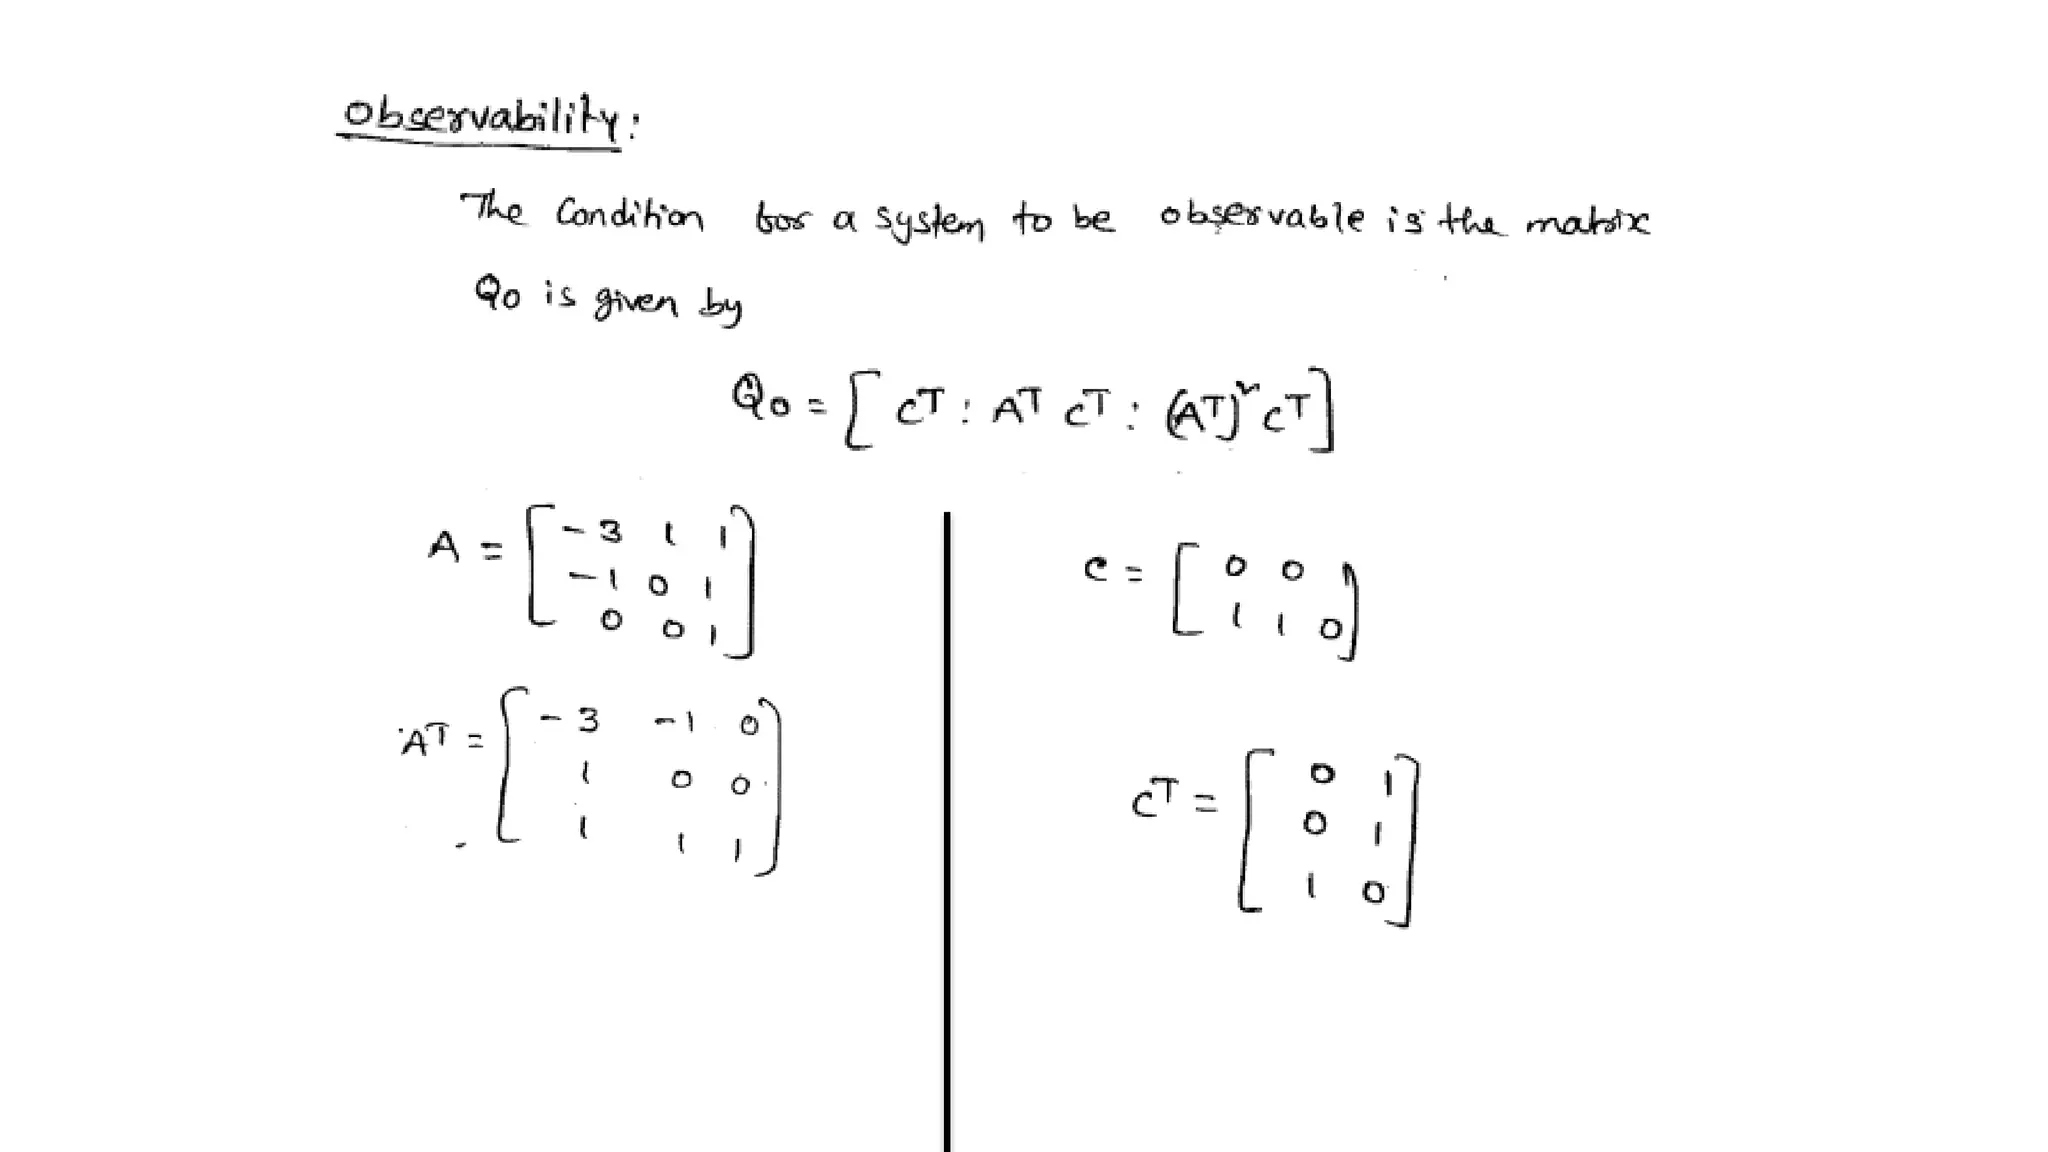 Observability:
The Condition for a system to be observable is the matrix
Qo is given by
Qo = [ CT : AT CT : (AT)² CT ]
A = [ -3 1 1
-1 0 1
0 0 1 ]
AT = [ -3 -1 0
1 0 0
1 1 1 ]
C = [ 0 0 1
1 1 0 ]
CT = [ 0 1
0 1
1 0 ]